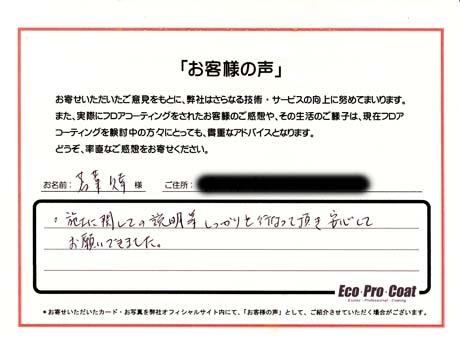 「お客様の声」
お寄せいただいたご意見をもとに、弊社はさらなる技術・サービスの向上に努めてまいります。
また、実際にフロアコーティングをされたお客様のご感想や、その生活のご様子は、現在フロア
コーティングを検討中の方々にとっても、貴重なアドバイスとなります。
どうぞ、率直なご感想をお寄せください。
お名前： 様 ご住所：
・施工に関しての説明等しっかりと行なって頂き安心して
お願いできました。
Eco・Pro・Coat
Ecoley - Professional - Coating
＊お寄せいただいたカード・お写真を弊社オフィシャルサイト内にて、「お客様の声」として、ご紹介させていただく場合がございます。